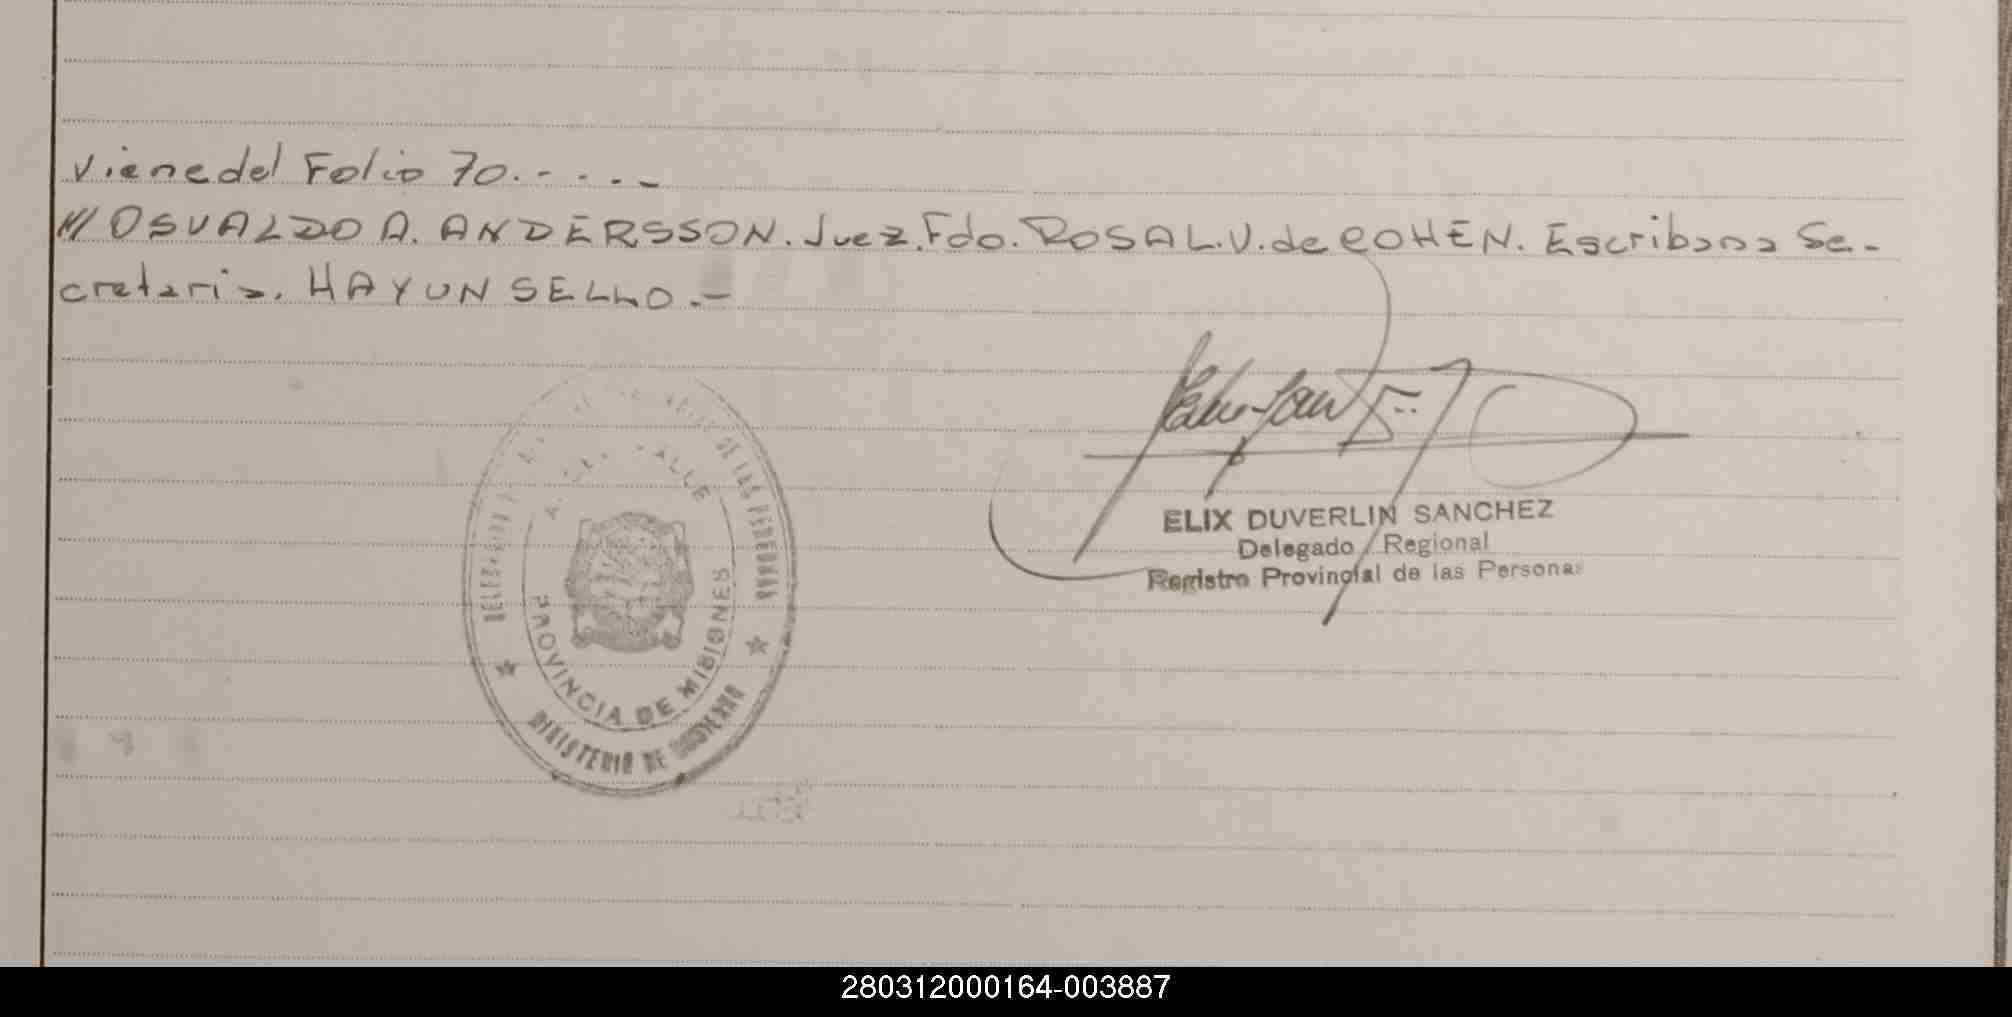 Viene del Folio 70.- - - - -
/// OSVALDO A. ANDERSSON. Juez. Fdo. ROSA L. V. de COHEN. Escribana Se-
cretaria. HAY UN SELLO.-
DE LAS PERSONAS
VALLE
PROVINCIA DE MISIONES
MINISTERIO DE GOBIERNO
ELIX DUVERLIN SANCHEZ
Delegado Regional
Registro Provincial de las Personas
280312000164-003887